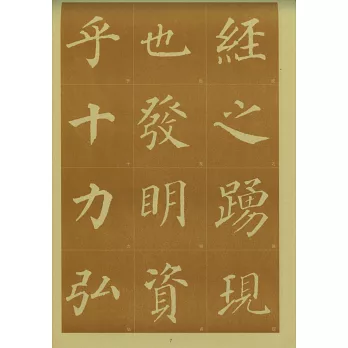 經之踴現
也發明資
乎十力弘